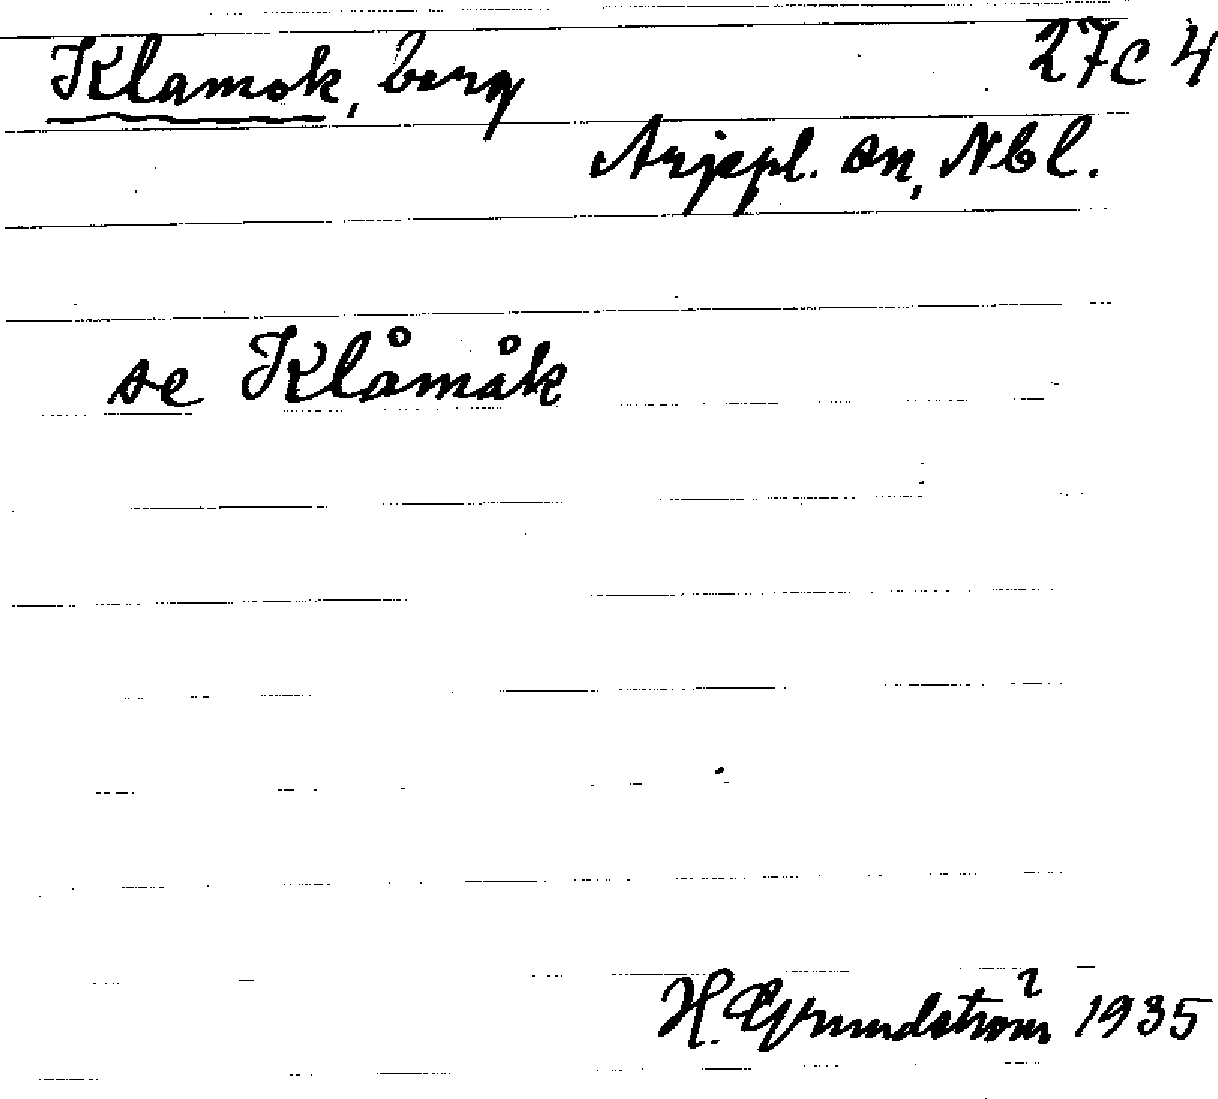 Klamok, berg 27c4
Arjepl. sn, Nbl.
se Klåmåk
H. Grundström 1935